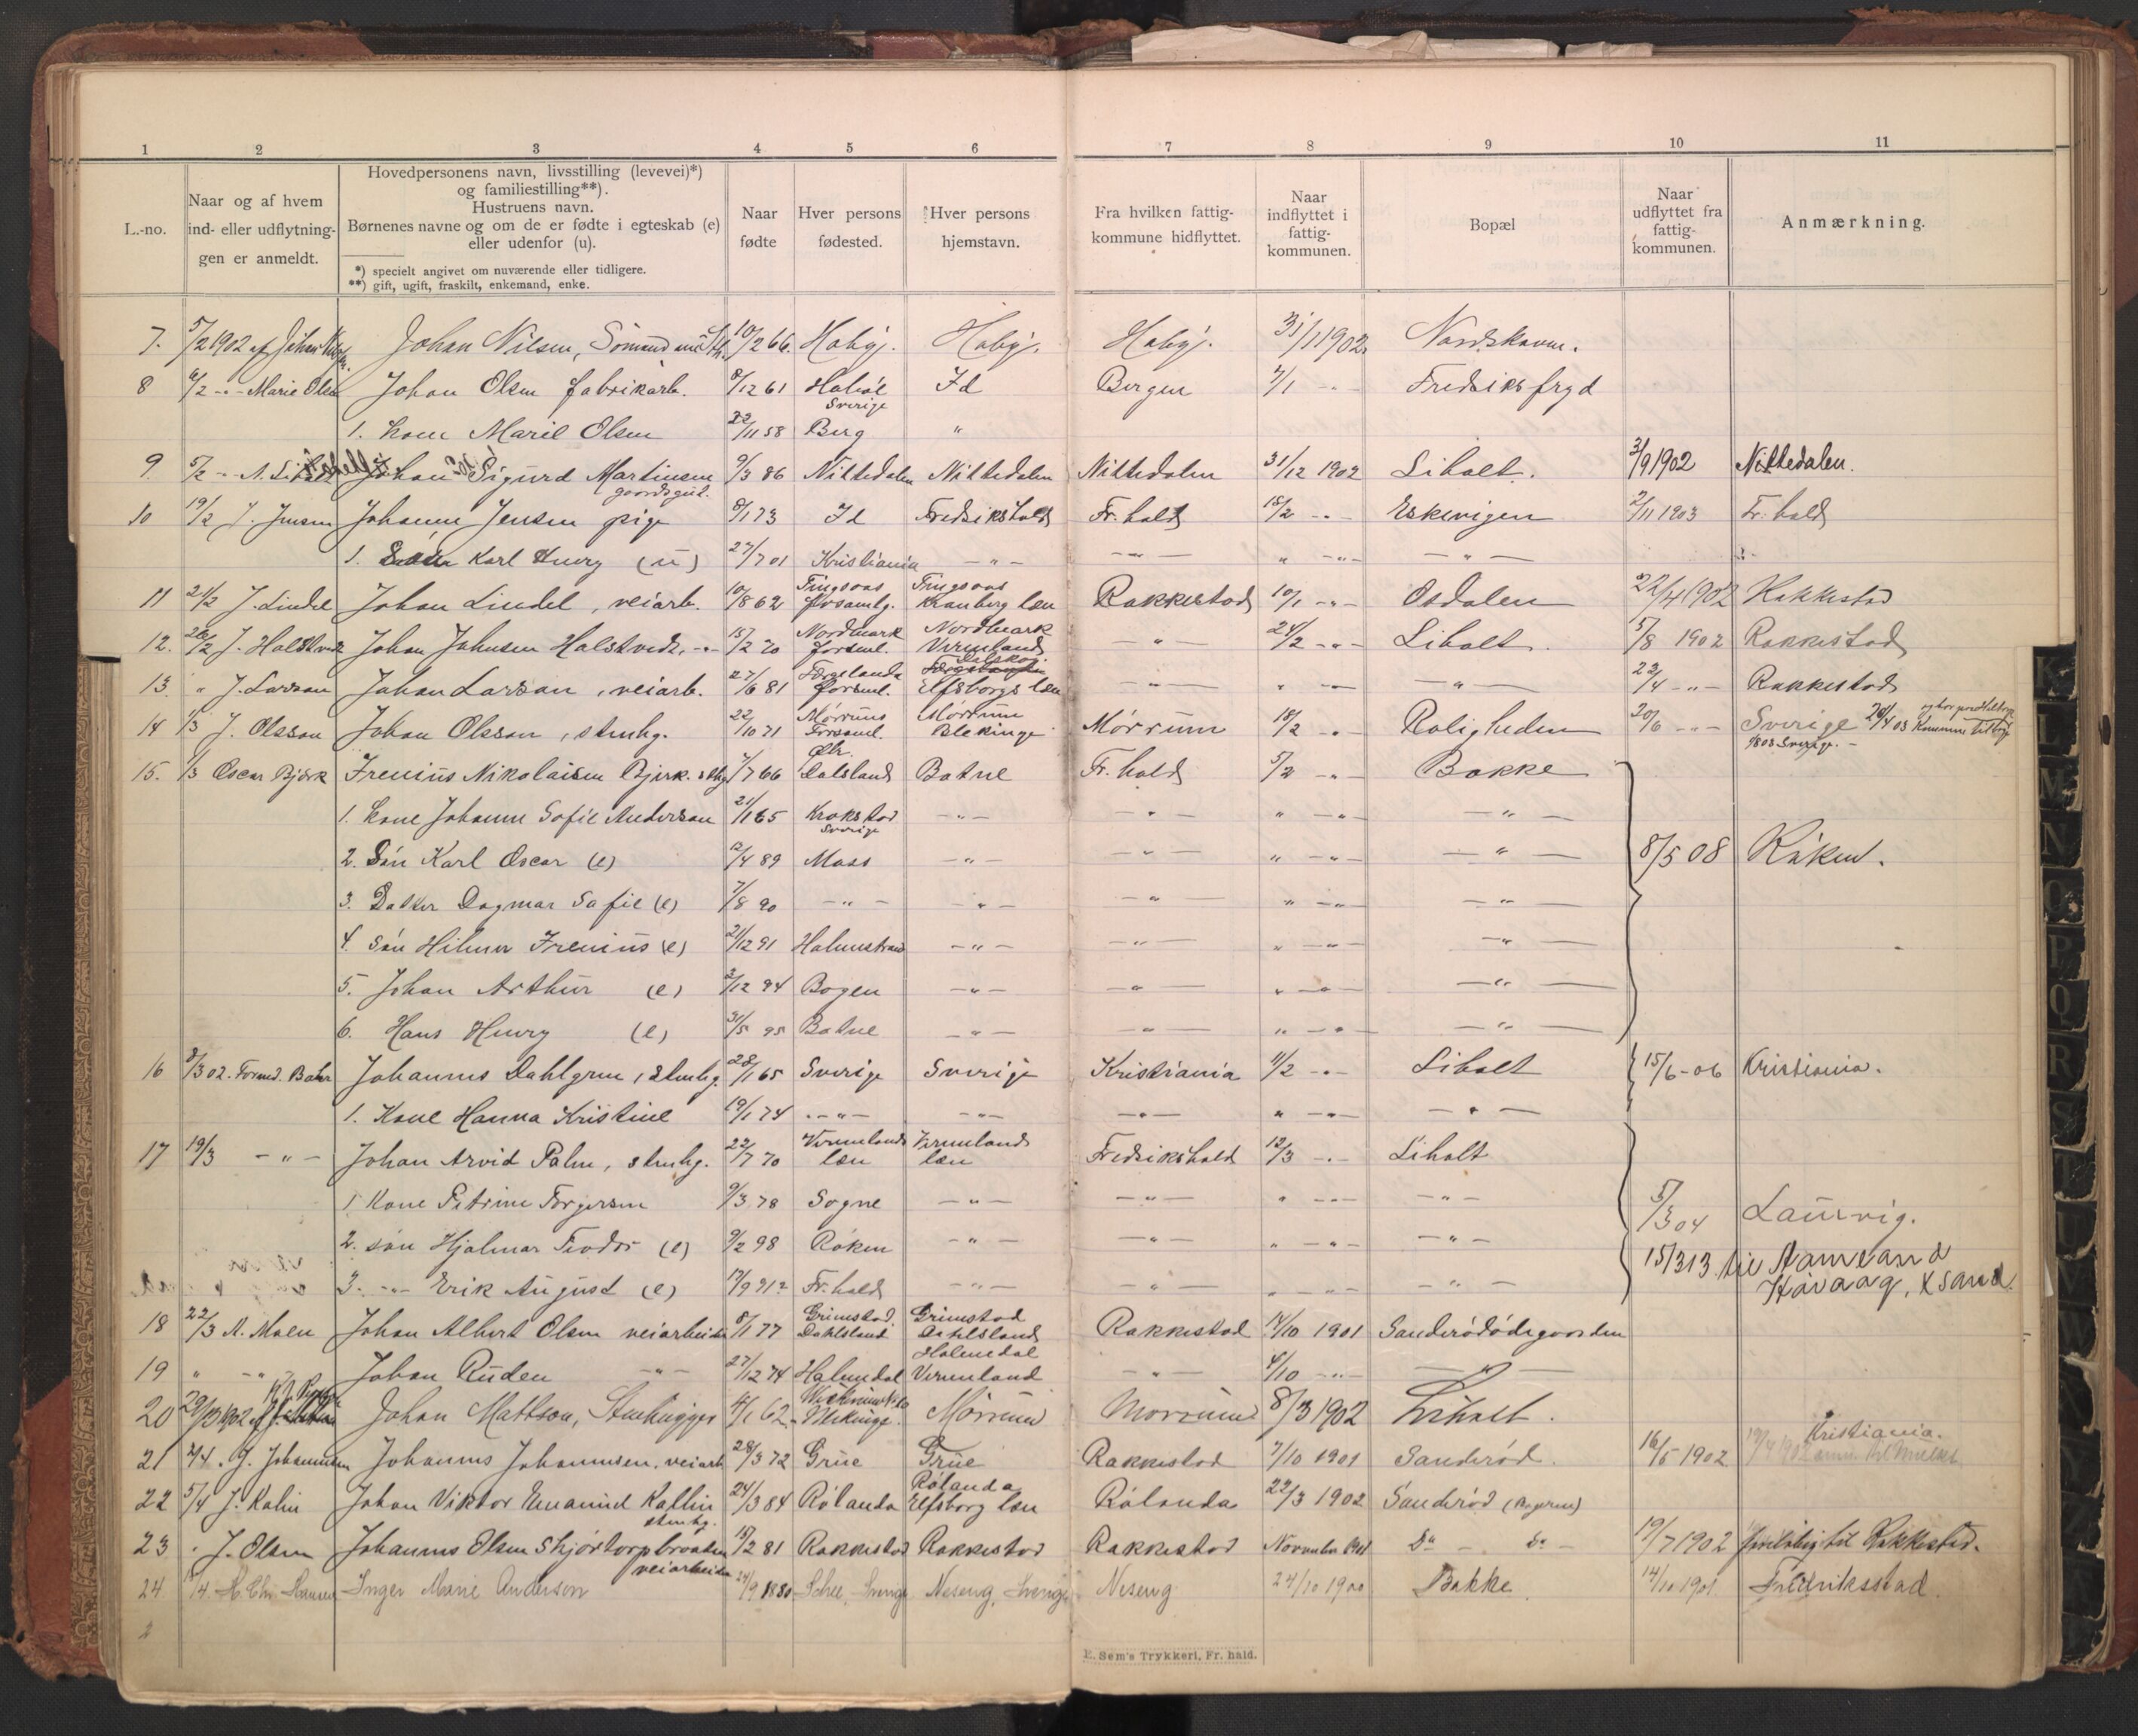 1 2 3 4 5 6 7 8 9 10 11
L.-no.
Naar og af hvem
ind- eller udflytnin-
gen er anmeldt.
Hovedpersonens navn, livsstilling (levevei)*)
og familiestilling**).
Hustruens navn.
Børnenes navne og om de er fødte i egteskab (e)
eller udenfor (u).
*) specielt angivet om nuværende eller tidligere.
**) gift, ugift, fraskilt, enkemand, enke.
Naar
fødte
Hver persons
fødested.
Hver persons
hjemstavn.
Fra hvilken fattig-
kommune hidflyttet.
Naar
indflyttet i
fattig-
kommunen.
Bopæl
Naar
udflyttet fra
fattig-
kommunen.
Anmærkning.
7. 5/2 1902 af Johan Johan Nilsen, Sømand 10/2 66. Habøj. Habøj. Habøj. 31/1 1902. Nordskaven.
8 6/2 -"- Marie Olsen Johan Olsen fabrikarb. 8/12 61 Id Bergen 7/1 -"- Fredriksfryd
Sverige
1. Kone Marie Olsen 22/11 58 Berg "
9. 5/2 -"- Johan Sigurd Martinsen 9/3 86 Nittedalen Nittedalen Nittedalen 31/12 1902 Liholt. 3/9 1902 Nittedalen.
gaardsgut.
10 19/2 J. Jensen Johanne Jensen pige 8/1 73 Id Fredrikshald Fr.hald 15/2 -"- Eskevigen 2/11 1903 Fr.hald
1. Søn Karl Henry (u) 27/7 01 Kristiania -"- -"- " -"- -"-
Tingsaas Tingsaas
11 21/2 J. Lindel Johan Lindel, veiarb. 10/8 62 Forsamlg. Kronberg læn Rakkestad 10/1 -"- Osdalen 22/4 1902 Rakkestad
Nordmark Nordmark
12. 26/2 J. Halstvedt Johan Johnsen Halstvedt, -"- 15/2 70 forsml. Vermland -"- 24/2 -"- Liholt. 5/8 1902 Rakkestad
Færgelanda
13. " J. Larsson Johan Larsson, veiarb. 27/6 81 Forsml. Elfsborgs læn -"- " -"- -"- 23/4 -"- Rakkestad
Mörrums Mörrum
14 1/3 J. Olsson Johan Olsson, stenhg. 22/10 71 Forsaml. Blekinge Mörrum 18/2 -"- Roligheden 20/6 -"- Sverige 20/4 03
1803 Sverige.
15. 1/3 Oscar Bjørk Irenius Nikolaisen Bjørk. sthg 7/7 66 Dalsland Botne Fr.hald 5/2 -"- Bakke
1. Kone Johanne Sofie Anderson 21/1 65 Krokstad -"- -"- " -"- -"-
Sverige
2. Søn Karl Oscar (e) 2/4 89 Moss -"- -"- " -"- -"- 8/5 08 Röken.
3. Datter Dagmar Sofie (e) 7/8 90 -"- -"- -"- " -"- -"-
4. Søn Hilmer Irenius (e) 21/12 91 Holmestrand -"- -"- " -"- -"-
5. Johan Arthur (e) 2/12 94 Bogen -"- -"- " -"- -"-
6. Hans Henry (e) 31/5 95 Botne -"- -"- " -"- -"-
16 8/3 02. Formd. Bakke Johannes Dahlgren, stenhg. 28/1 65 Sverige Sverige Kristiania 11/2 -"- Liholt 15/6-06 Kristiania.
1. Kone Hanna Kristine 19/1 74 -"- -"- -"- " -"- -"-
Vermlands Vermlands
17 19/3 -"- Johan Arvid Palm, stenhg. 22/7 70 læn læn Fredrikshald 12/3 -"- Liholt
1 Kone Petrine Torgersen 9/3 78 Sogne -"- -"- " -"- -"-
5/3 04 Laurvig.
2. søn Hjalmar Teodor (e) 9/2 98 Röken -"- -"- " -"- -"-
15/3 13 til Aameland
3. -"- Erik August (e) Fr.hald -"- -"- " -"- -"- Høvaag, X sand.
Grimstad Grimstad
18 22/3 A. Moen Johan Albert Olsen veiarbeider 8/1 77 Dahlsland Dahlsland Rakkestad 14/10 1901 Sanderødødegaarden
Holmedal
19 " -"- Johan Ruden -"- 27/12 74 Holmedal Vermland -"- 4/10 -"- -"-
20 29/3 1902 Johan Mattson, Stenhugger 4/1 62 Blekinge. Mörrum Morrum 8/3 1902 Liholt.
Kristiania.
21 2/4. J. Johannesen Johannes Johannesen, veiarb 28/3 72 Grue Grue Rakkestad 7/10 1901 Sanderød. 16/5 1902
Rölanda
22 5/4 J. Kalin Johan Viktor Emanuel Kallin 24/3 84 Rölanda Elfsborg læn Rölanda 22/3 1902 Sanderød
stenhg.
23 " J. Olsen Johannes Olsen Skjörtorpbraaten 15/2 81 Rakkestad Rakkestad Rakkestad November 1901 Do - Do - 19/7 1902 foreløbig til Rakkestad.
veiarbeider
24 /4. H. Chr. Hansen Inger Marie Anderson 24/9 1880 Sverige Neseng, Sverige Neseng 24/10 1900 Bakke. 14/10 1901 Fredriksstad.
2
E. Sem's Trykkeri, Fr.hald.
K
L
M
N
O
P
Q
R
S
T